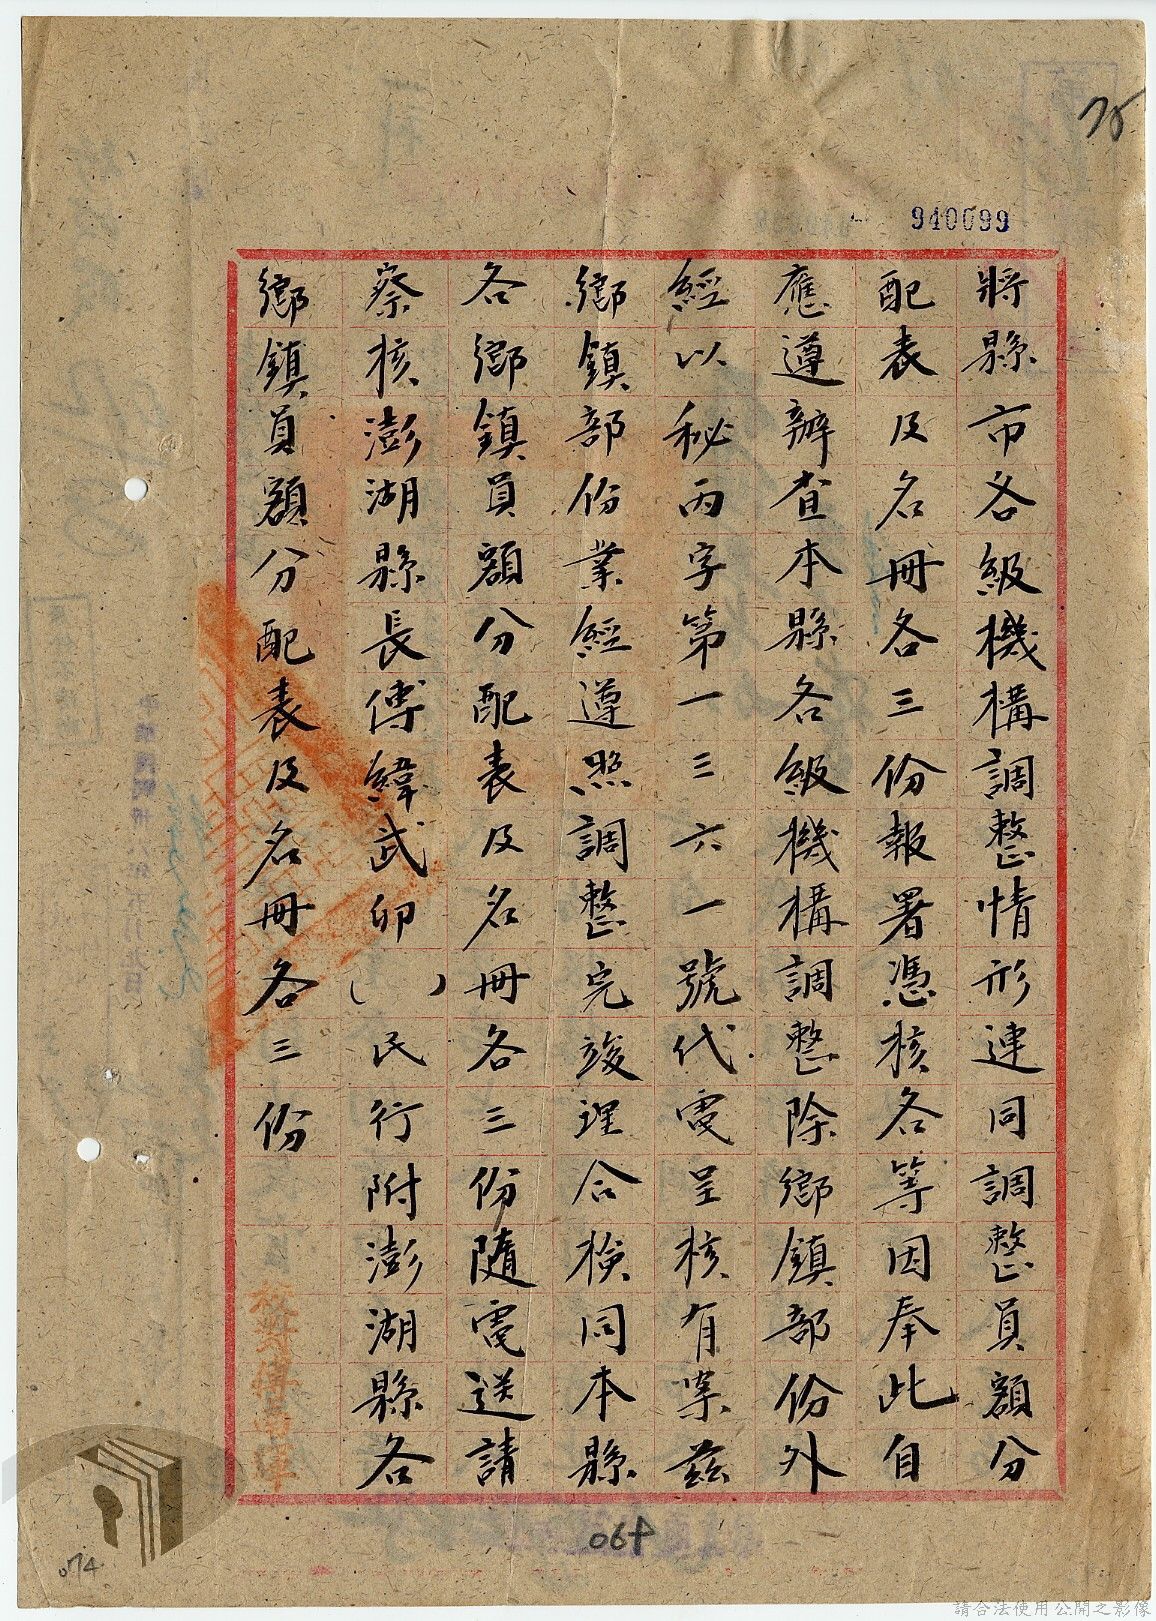 940099
將縣市各級機構調整情形連同調整員額分
配表及名冊各三份報署憑核各等因奉此自
應遵辦查本縣各級機構調整除鄉鎮部份外
經以秘丙字第一三六一號代電呈核有案茲
鄉鎮部份業經遵照調整完竣理合檢同本縣
各鄉鎮員額分配表及名冊各三份隨電送請
察核澎湖縣長傅緯武卯（ ）民行附澎湖縣各
鄉鎮員額分配表及名冊各三份
064
074
請合法使用公開之影像